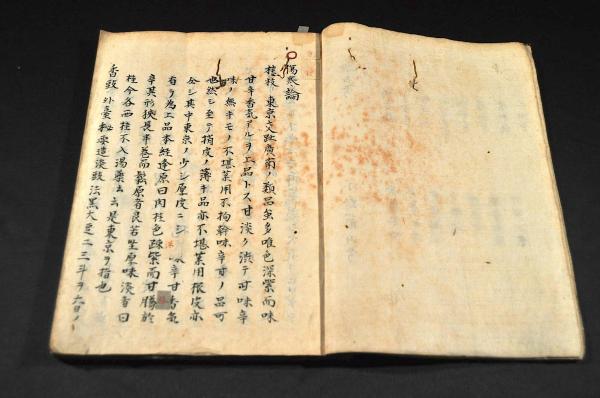 傷寒論
桂枝 東京交趾廣南ノ類品多唯色深紫而味
甘辛香氣アルヲ上品トス甘淡ク渋テ可味辛
味ノ無キモノ不堪薬用不拘幹味辛甘ノ品可
也然シ至テ指皮ノ薄キ品亦不堪薬用板皮亦
分シ其中東京ノ少シ厚皮ニシ 味辛甘香氣
有ヲ為上品本經逢原曰肉桂色深紫而甘勝於
辛其形狭長半卷而鬆厚者良若坚厚味淡者曰
桂今各西桂不入湯藥云云是東京ヲ指也
香豉 外臺秘要造淡豉法黒大豆二三斗ヲ六日ノ